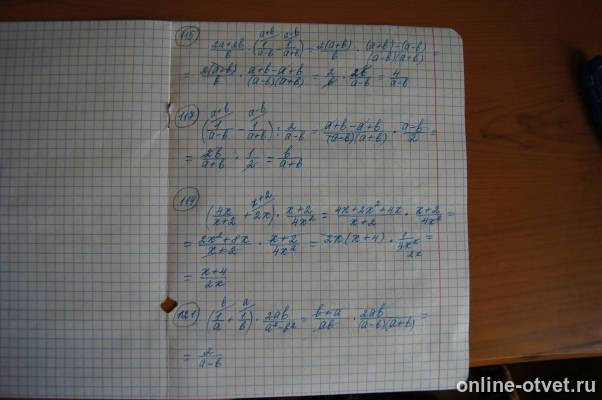 115
a+b a-b
2a+2b/b · (1/a-b - 1/a+b) = 2(a+b)/b · (a+b)-(a-b)/(a-b)(a+b) =
= 2(a+b)/b · a+b-a+b/(a-b)(a+b) = 2/b · 2b/a-b = 4/a-b
117
a+b a-b
(1/a-b - 1/a+b) : 2/a-b = a+b-a+b/(a-b)(a+b) · a-b/2 =
= 2b/a+b · 1/2 = b/a+b
119
x+2
(4x/x+2 + 2x) · x+2/4x² = 4x+2x²+4x/x+2 · x+2/4x² =
= 2x²+8x/x+2 · x+2/4x² = 2x(x+4) · 1/4x² =
2x
= x+4/2x
b a
121 (1/a + 1/b) · 2ab/a²-b² = b+a/ab · 2ab/(a-b)(a+b) =
= 2/a-b
online-otvet.ru